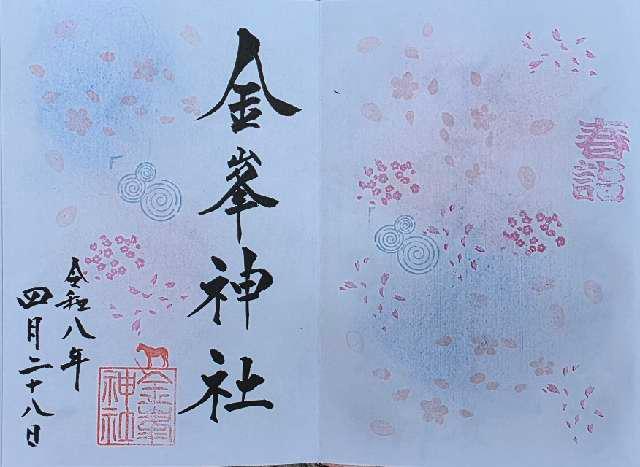 春詣
金峯神社
令和八年
四月二十八日
金峯神社